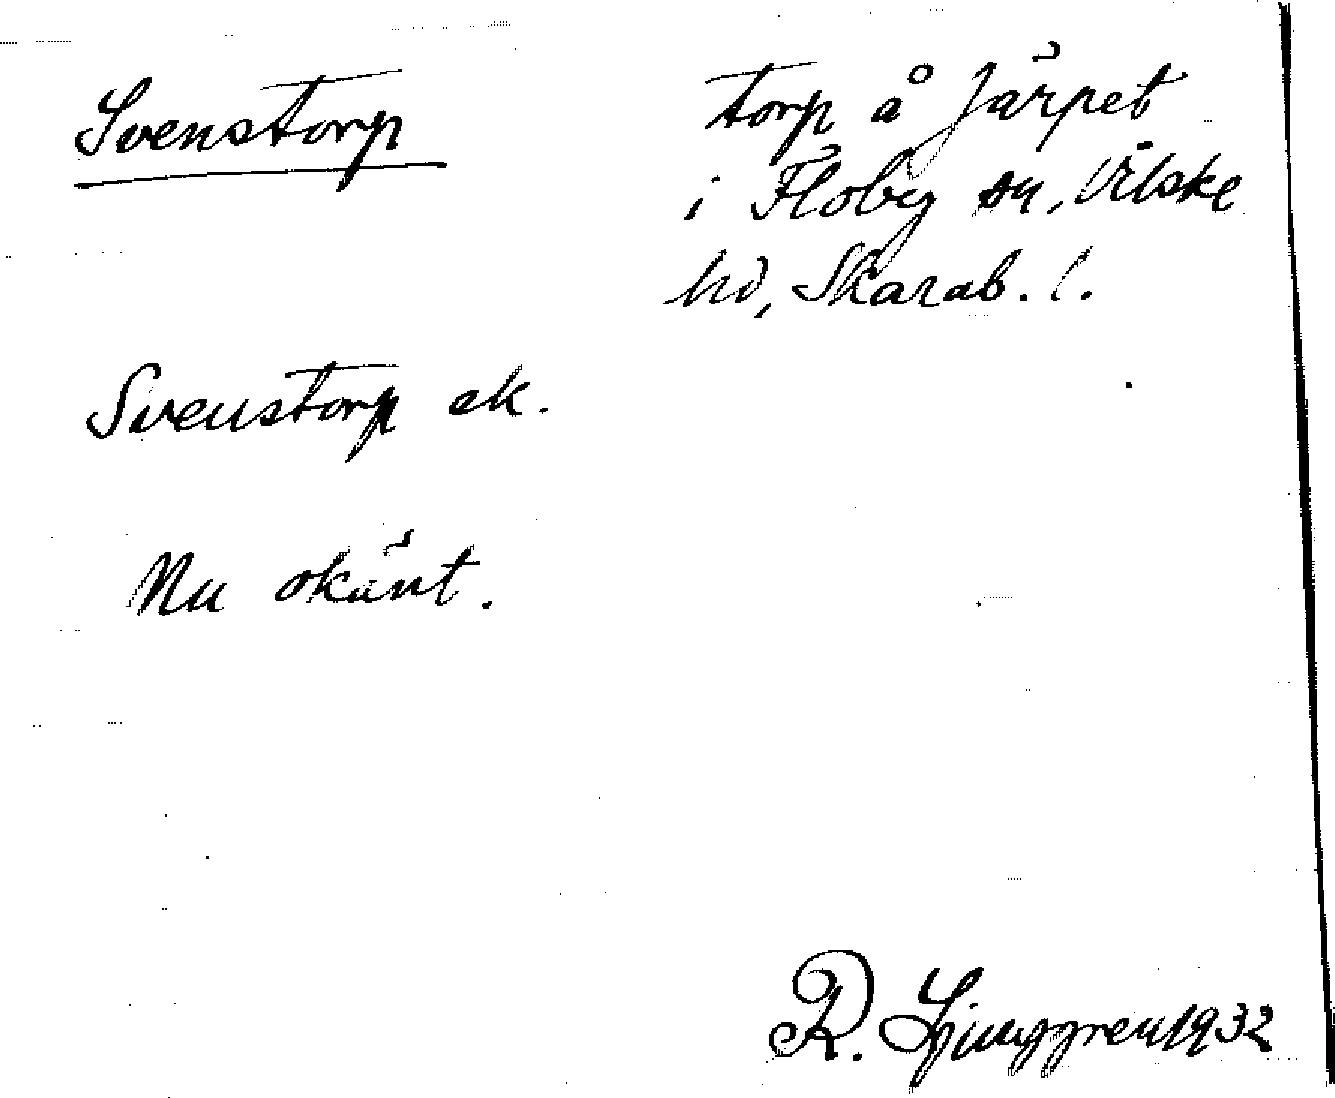 Svenstorp
torp å Järpet
i Floby sn, Vilske
hd, Skarab. l.
Svenstorp ek.
Nu okänt.
R. Ljunggren 1932